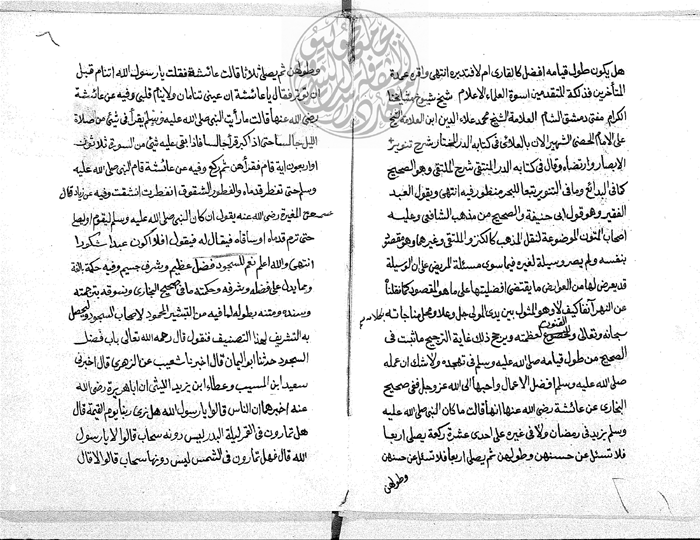 هل يكون طول قيامه افضل كالقارى ام لا فتدبره انتهى واقره عمدة
المتأخرين فذلكة المتقدمين اسوة العلماء الاعلام شيخ شيوخ مشايخنا
الكرام مفتى دمشق الشام الشيخ محمد علاء الدين ابن العلامة الشيخ
على الامام الحصنى الشهير الان بالعلائى فى كتابه الدر المختار شرح تنوير
الابصار وارتضاه وقال فى كتابه الدر المنتقى شرح الملتقى وهو الصحيح
كما فى البدائع وما فى التنوير تبعا للبحر منظور فيه انتهى ويقول العبد
الفقير وهو قول ابى حنيفة والصحيح من مذهب الشافعى وعليه
اصحاب المتون الموضوعة لنقل المذهب كالكنز والملتقى وغيرها وهو مقصود
بنفسه ولم يصر وسيلة لغيره فيما سوى مسئلة المريض على ان الوسيلة
قد يعرض لها من العوارض ما يقتضى افضليتها على ما هو المقصود كما نقلنا
عن النهر آنفا كيف لا وهو المثول بين يدى المولى جل وعلا ومحل مناجاته بكلامه
سبحانه وتعالى والقنوت لعظمته ويرجح ذلك غاية الترجيح ما ثبت فى
الصحيح من طول قيامه صلى الله عليه وسلم فى تهجده ولا شك ان عمله
صلى الله عليه وسلم افضل الاعمال واحبها الى الله عز وجل ففى صحيح
البخارى عن عائشة رضى الله عنها انها قالت ما كان النبى صلى الله عليه
وسلم يزيد فى رمضان ولا فى غيره على احدى عشرة ركعة يصلى اربعا
فلا تسئل عن حسنهن وطولهن ثم يصلى اربعا فلا تسئل عن حسنهن
وطولهن
٦
وطولهن ثم يصلى ثلاثا قالت عائشة فقلت يا رسول الله اتنام قبل
ان توتر فقال يا عائشة ان عينى تنامان ولا ينام قلبى وفيه عن عائشة
رضى الله عنها قالت ما رأيت النبى صلى الله عليه وسلم يقرأ فى شئ من صلاة
الليل جالسا حتى اذا كبر قرأ جالسا فاذا بقى عليه شئ من السورة ثلاثون
او اربعون اية قام فقرأهن ثم ركع وفيه عن عائشة قام النبى صلى الله عليه
وسلم حتى تفطر قدماه والفطور الشقوق انفطرت انشقت وفيه عن زياد قال
سمعت المغيرة رضى الله عنه يقول ان كان النبى صلى الله عليه وسلم ليقوم او ليصلى
حتى ترم قدماه او ساقاه فيقال له فيقول افلا اكون عبدا شكورا
انتهى والله اعلم نعم للسجود فضل عظيم وشرف جسيم وفيه حكمة بالغة
ومما يدل على فضله وشرفه وحكمته ما فى صحيح البخارى ونسوقه بترجمته
وسنده ومتنه بطوله لما فيه من التبشير المحمود لاصحاب السجود وليحصل
به التشريف لهذا التصنيف فنقول قال رحمه الله تعالى باب فضل
السجود حدثنا ابو اليمان قال اخبرنا شعيب عن الزهرى قال اخبرنى
سعيد ابن المسيب وعطاء ابن يزيد الليثى ان ابا هريرة رضى الله
عنه اخبرهما ان الناس قالوا يا رسول الله هل نرى ربنا يوم القيمة قال
هل تمارون فى القمر ليلة البدر ليس دونه سحاب قالوا لا يا رسول
الله قال فهل تمارون فى الشمس ليس دونها سحاب قالوا لا قال